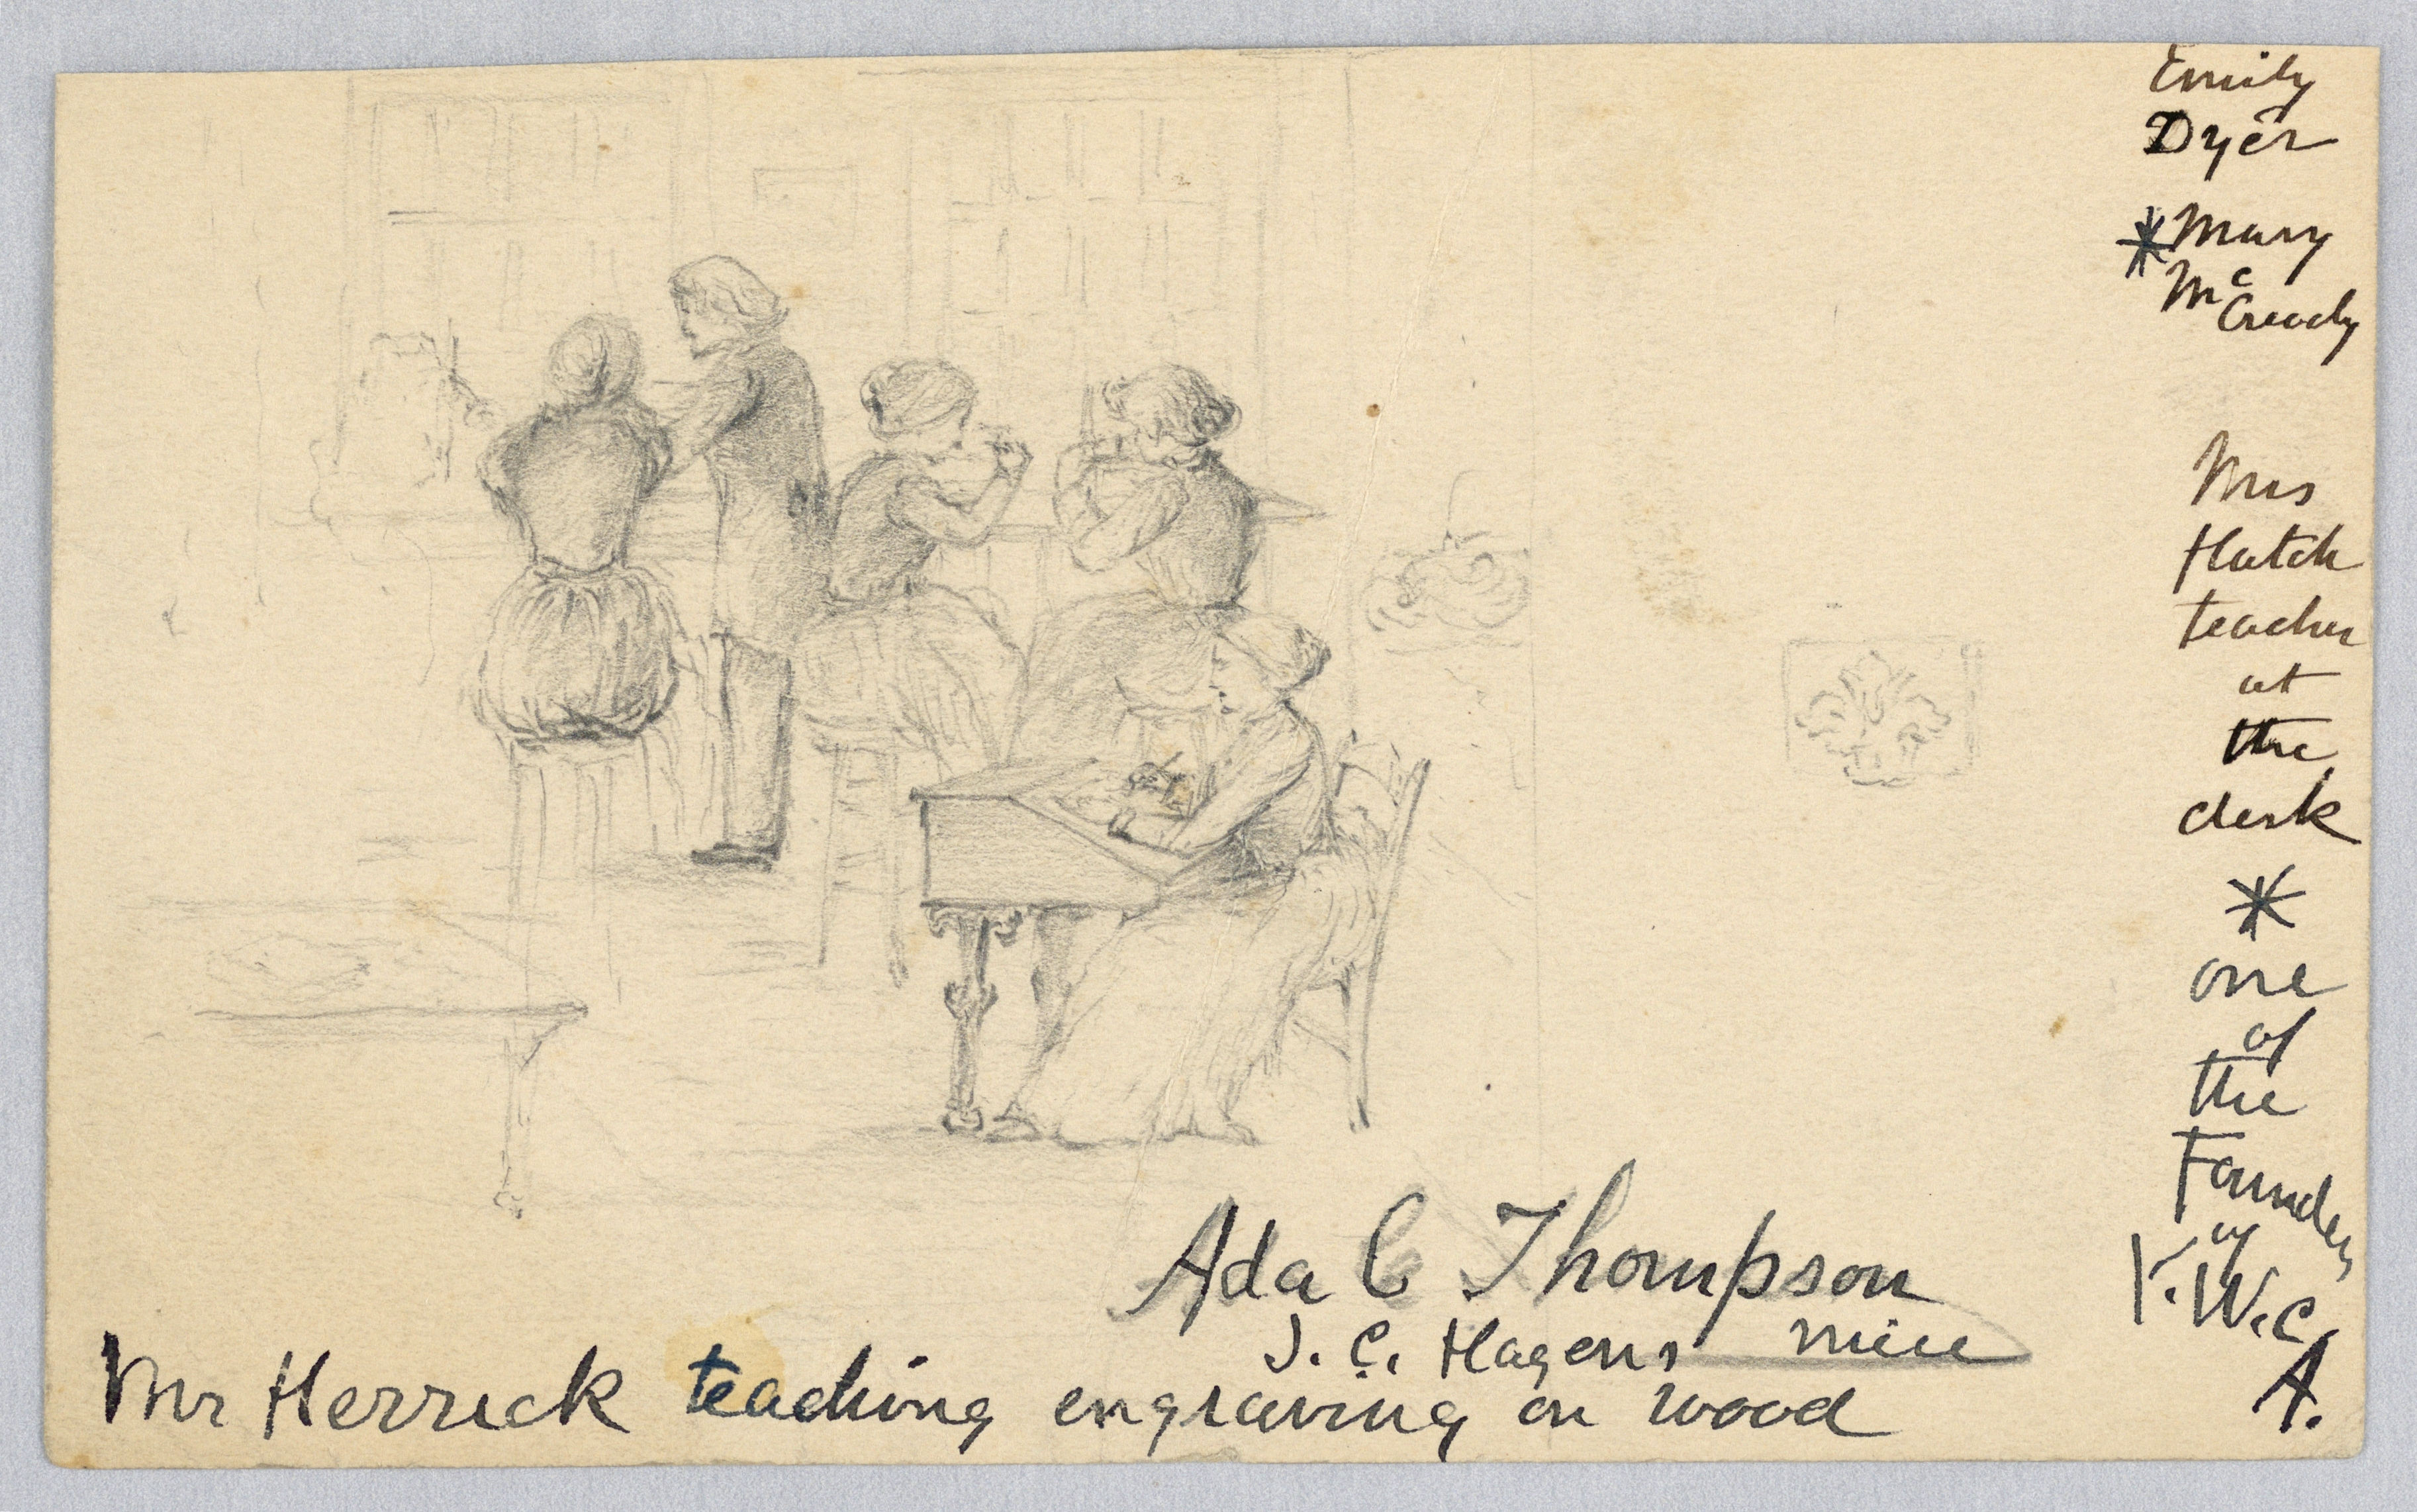 Emily
Dyer
* Mary
Mc
Cready
Mrs
Hatch
teacher
at
the
desk
*
one
of
the
Founders
of
Y.W.C.
A.
Ada C Thompson
J. C. Hagens niece
Mr Herrick teaching engraving on wood